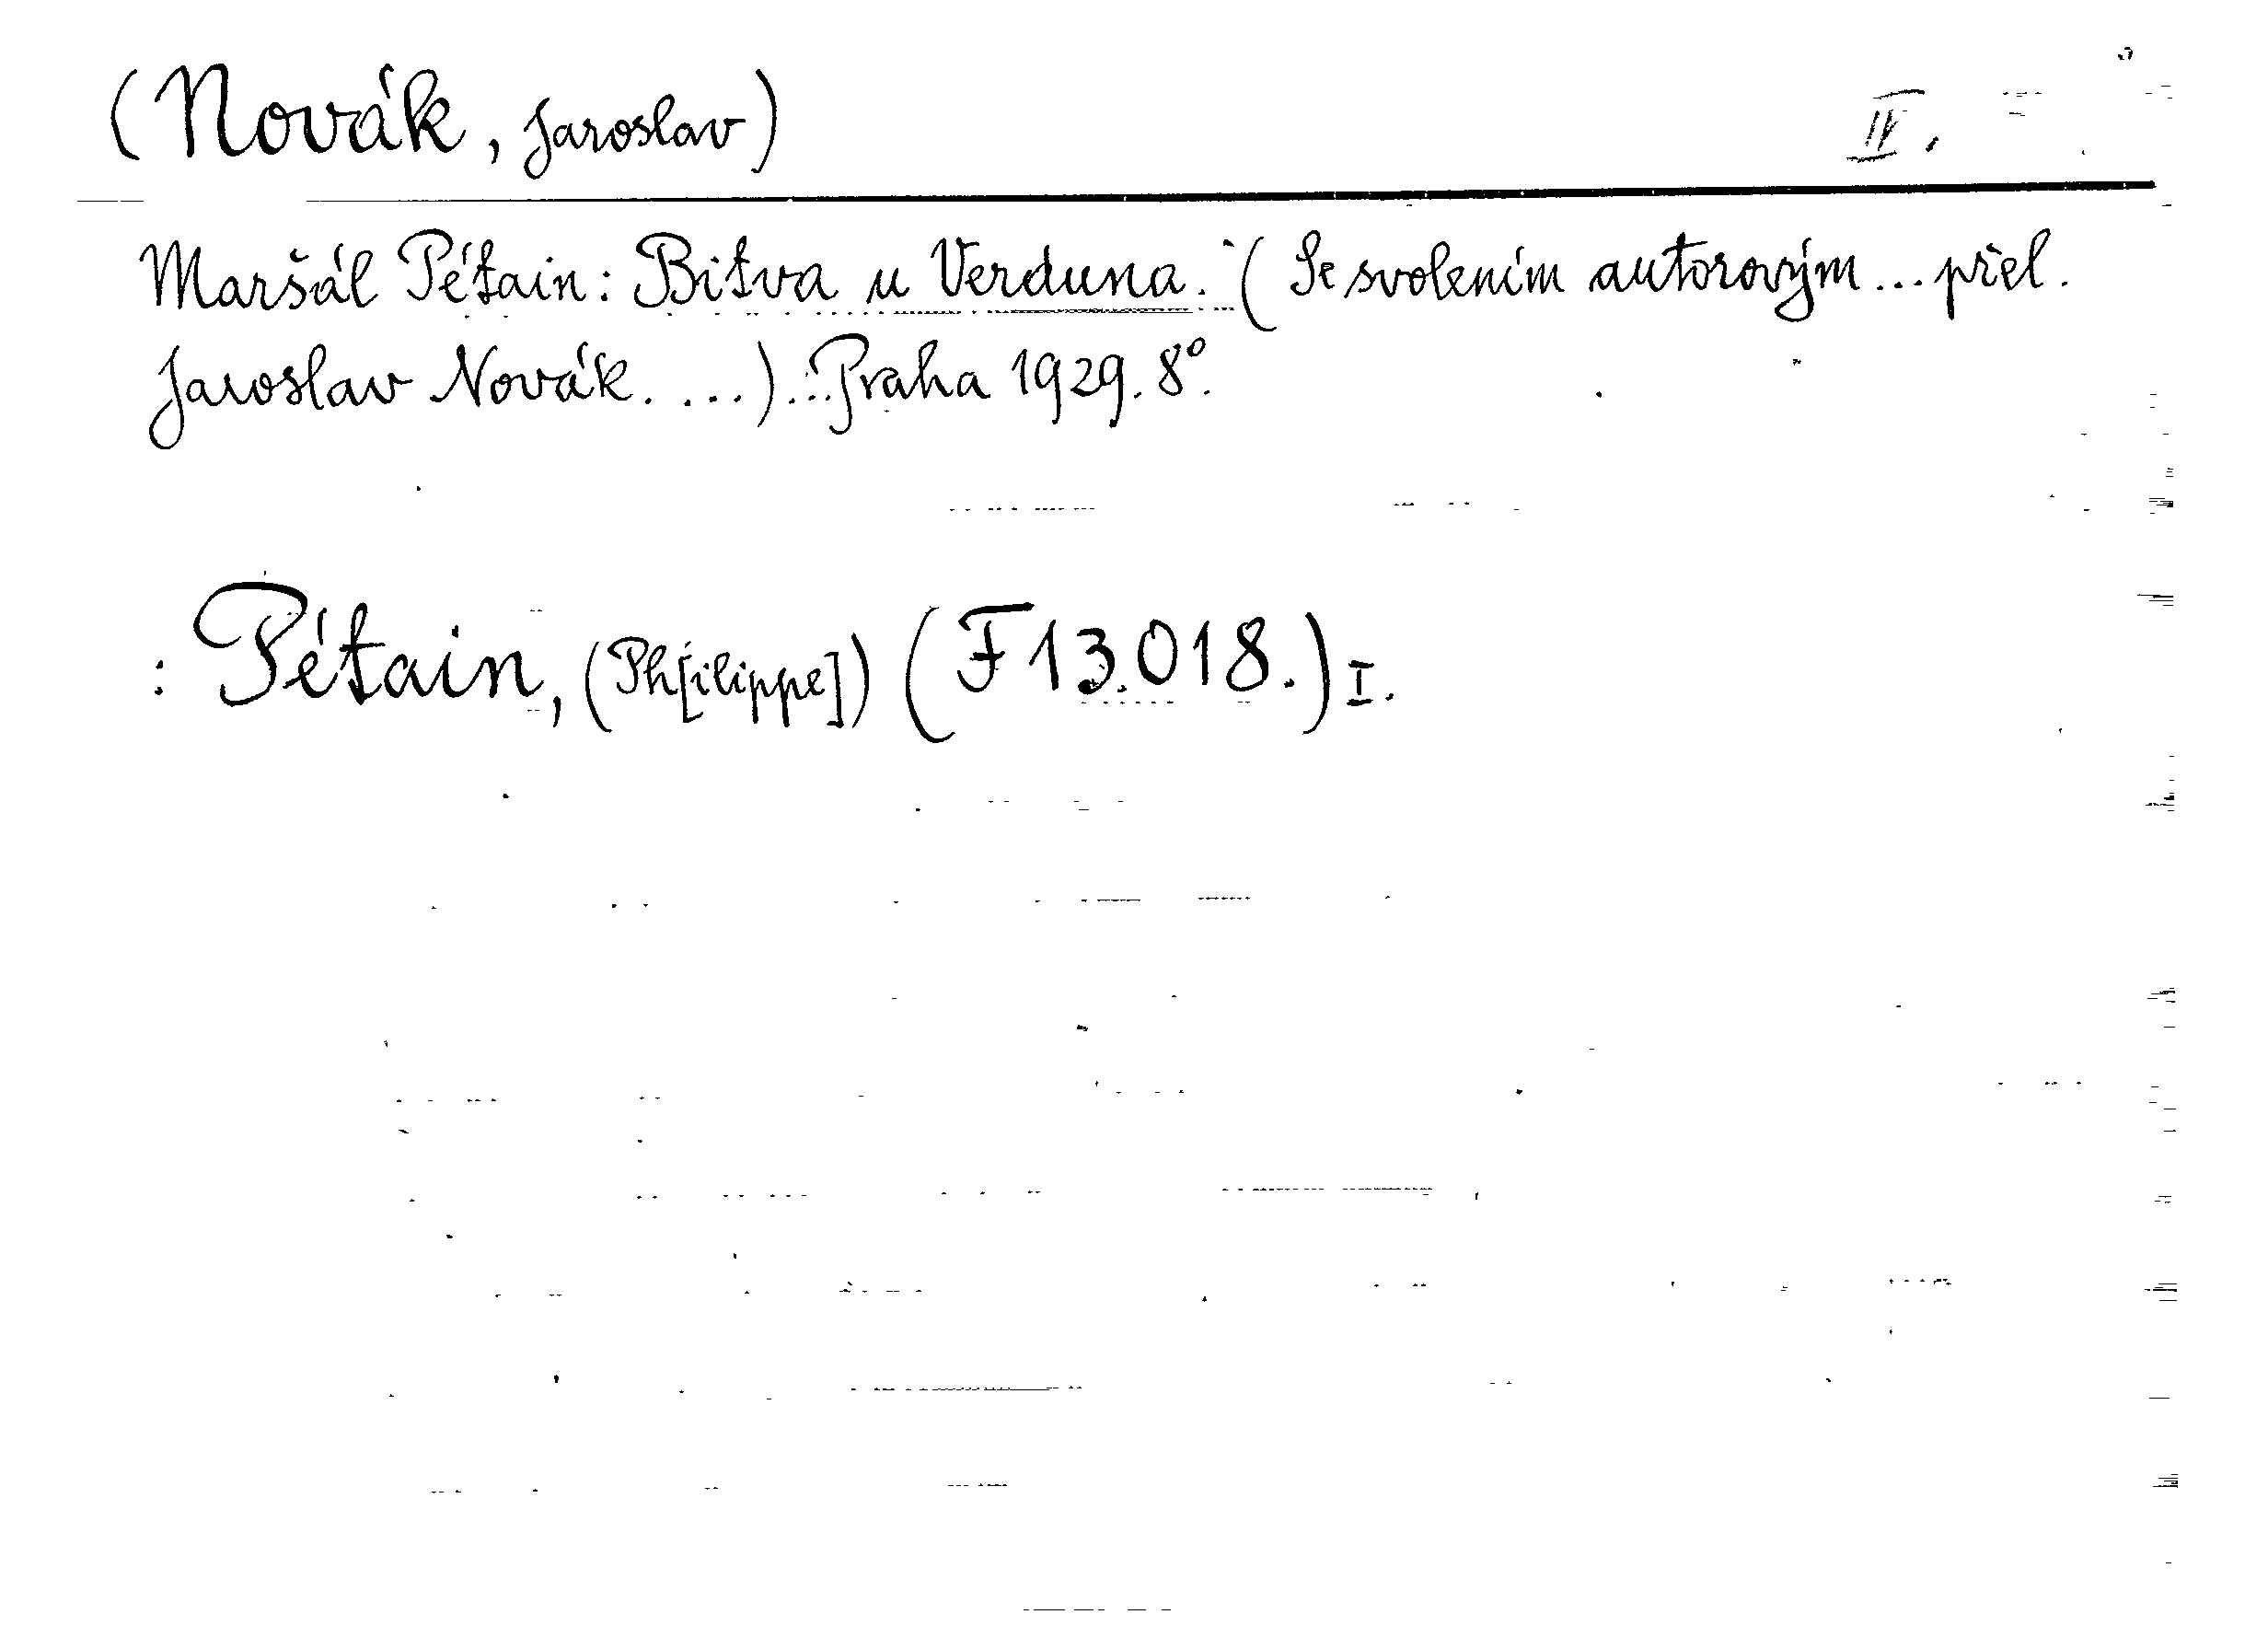 (Novák, Jaroslav) IV.
Maršál Pétain: Bitva u Verduna. (Se svolením autorovým... přel.
Jaroslav Novák. ...). Praha 1929. 8°.
: Pétain, (Ph[ilippe]) (F 13.018.) I.